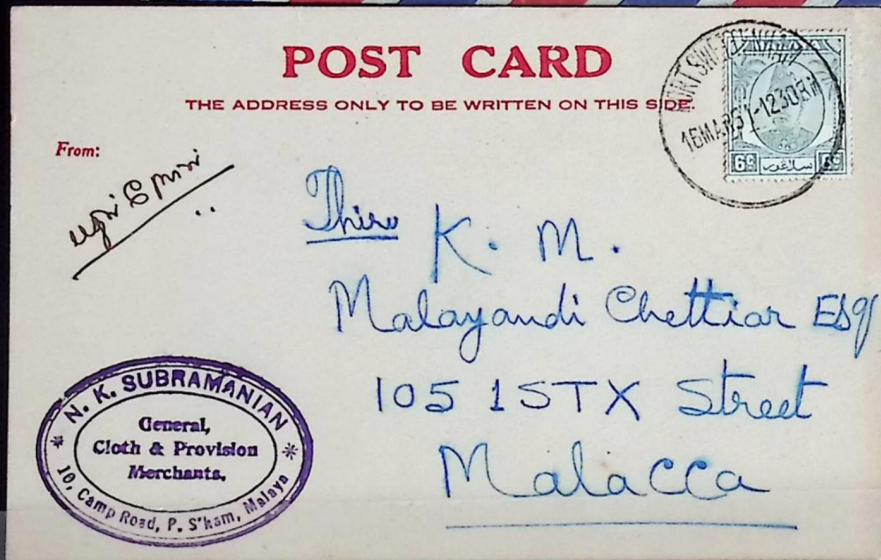 POST CARD
THE ADDRESS ONLY TO BE WRITTEN ON THIS SIDE.
From:
PORT SWETTENHAM
16MAR51-1230PM
6c سلاڠور 6c
Thiru
K. M.
Malayandi Chettiar ESq
105 1STX Street
Malacca
N. K. SUBRAMANIAN
General,
Cloth & Provision
Merchants.
10, Camp Road, P. S'ham, Malaya